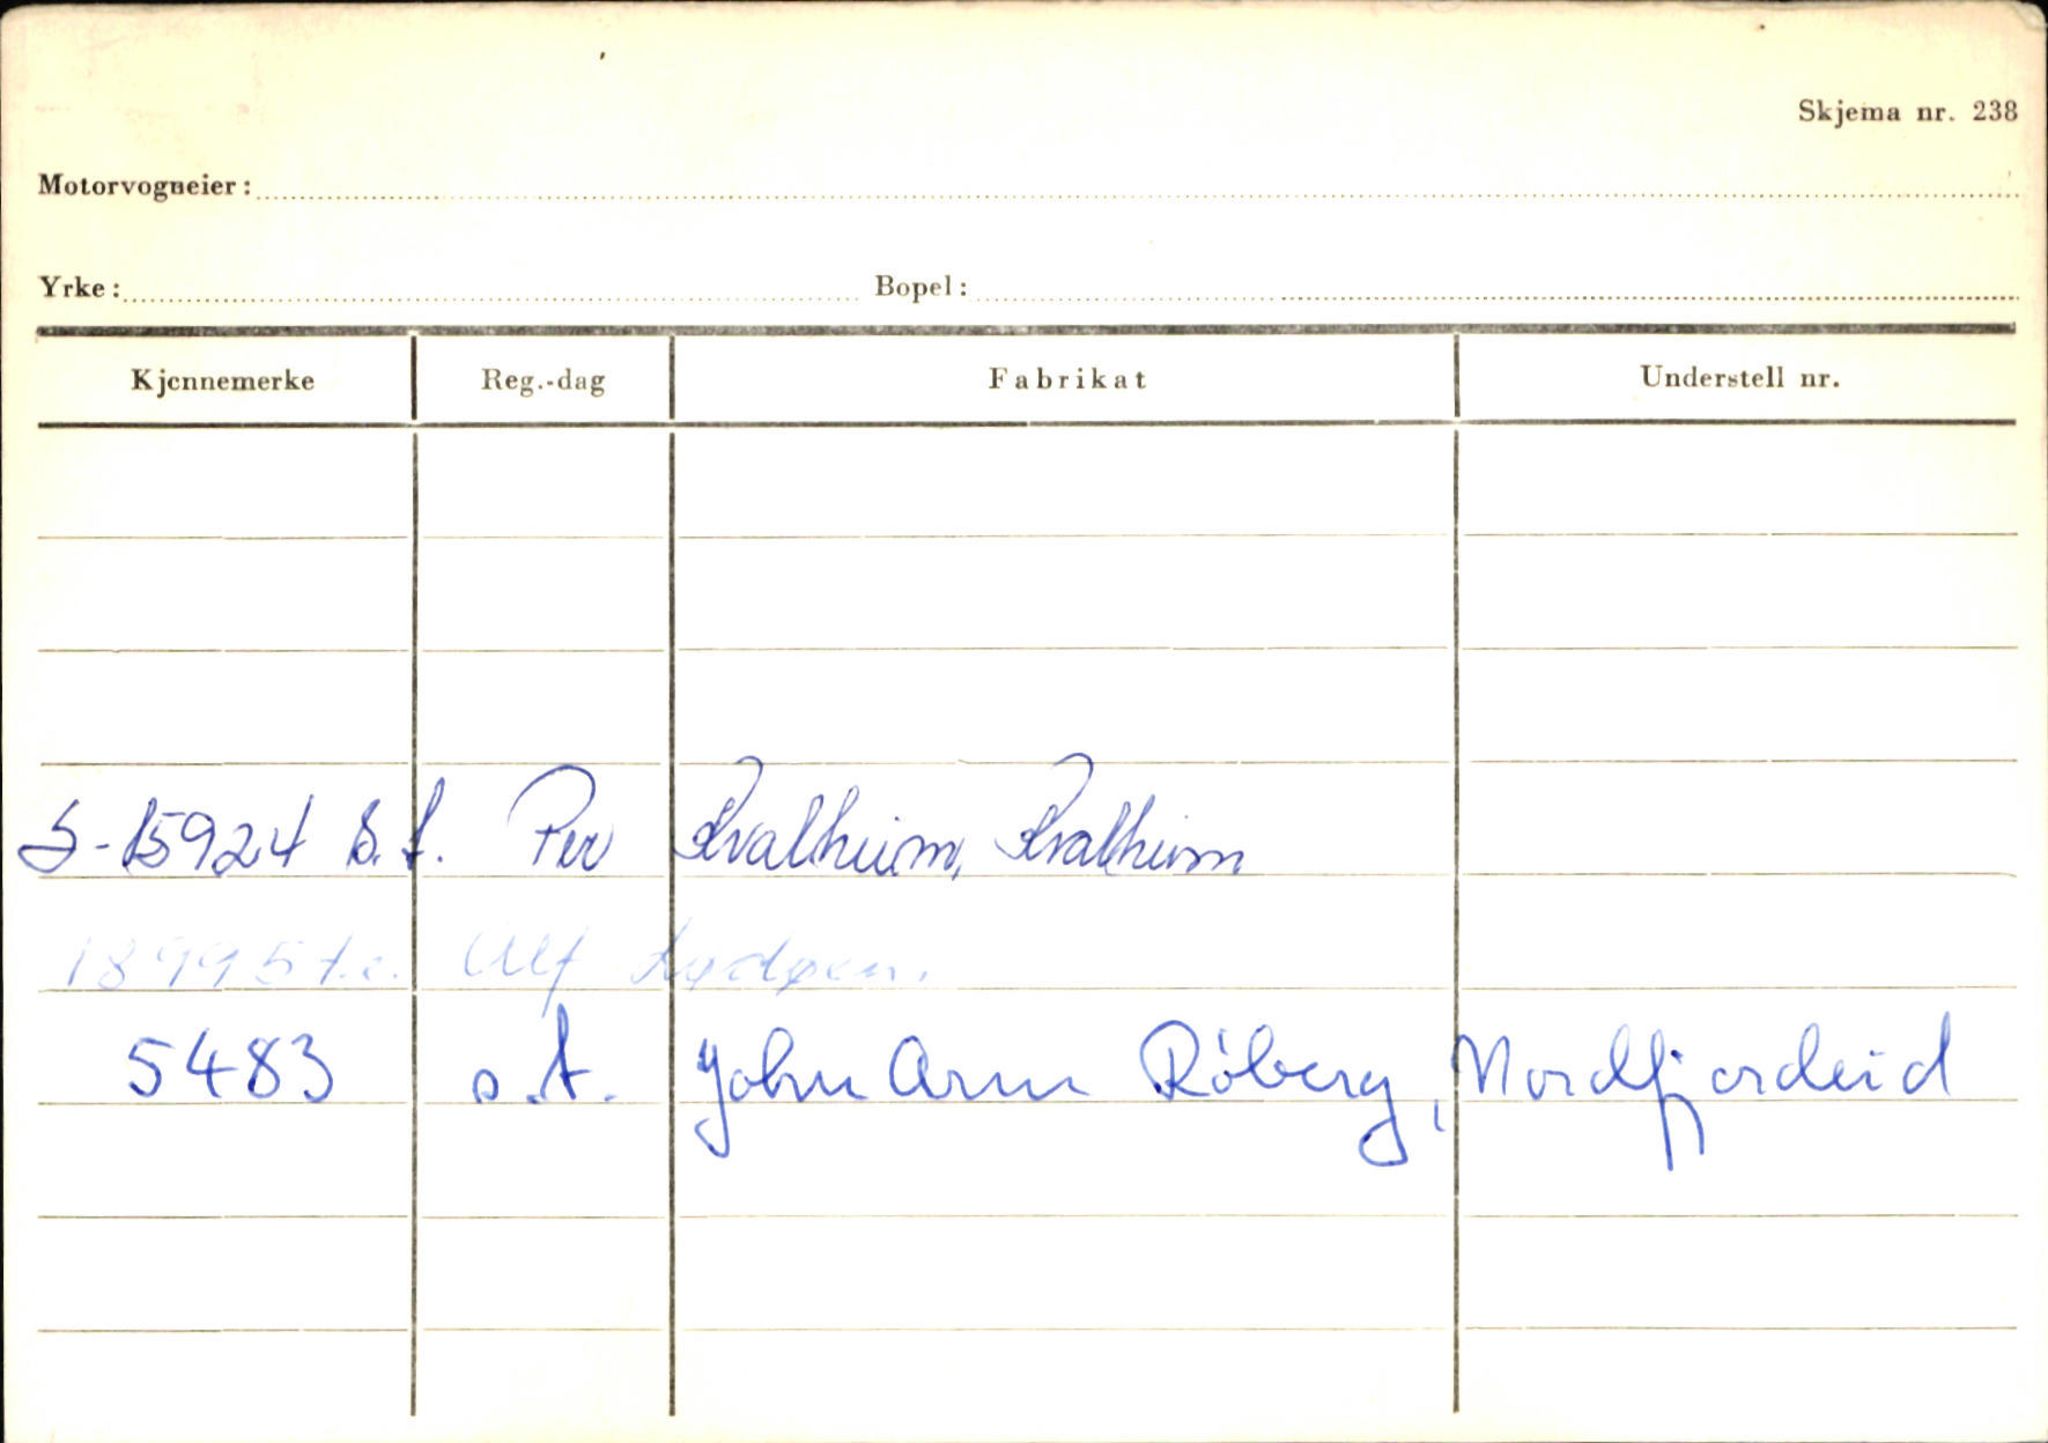 Skjema nr. 238
Motorvogneier:
Yrke: Bopel:
Kjennemerke Reg.-dag Fabrikat Understell nr.
S-15924 s.t. Per Kvalheim, Kvalheim
Alf
5483 s.t. John Arne Råberg, Nordfjordeid